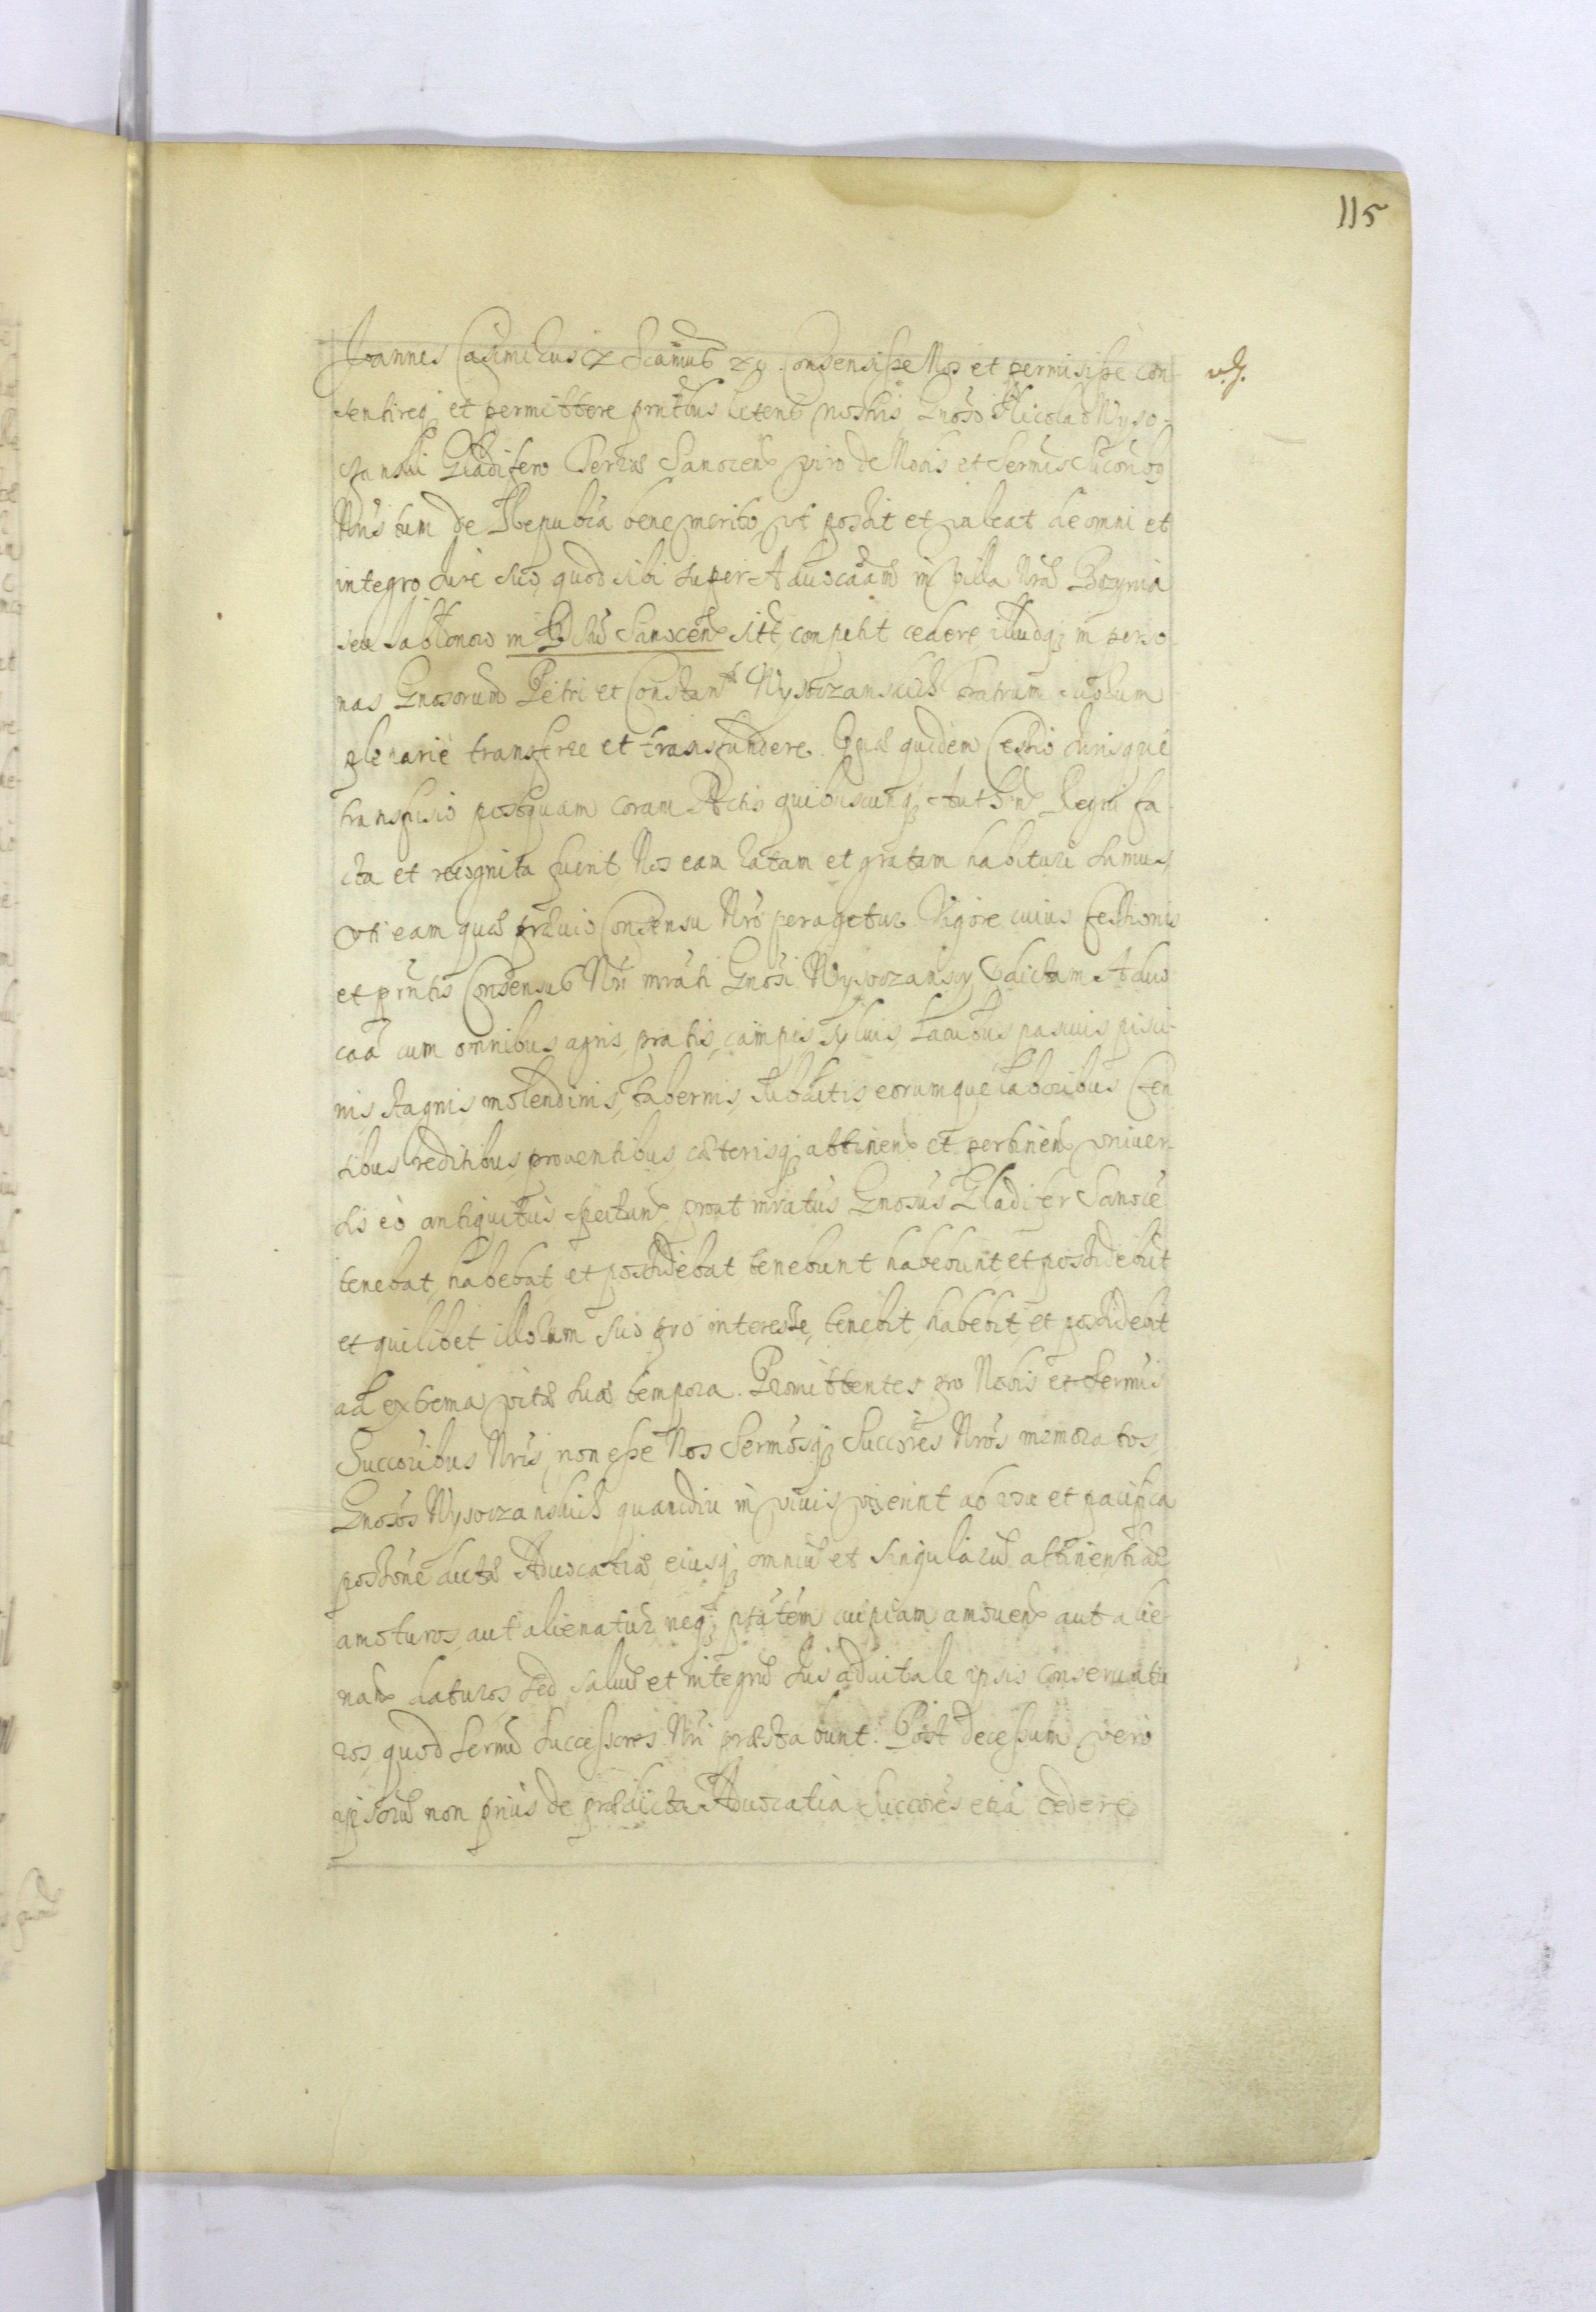 115
Joannes Casimirus etc Significamus etc. Consensisse Nos et permisisse con-
v. s.
sentireq; et permittere pntibus literis nostris, Gnoso Nicolao Wyso-
czanski Gladifero Terrae Sanocen viro de Nobis et Sermis
Nris tum de Republica bene merito, ut possit et valeat de omni et
integro Jure suo, quod sibi super Aduocaam in Villa Nra Bozynia
seu Jablonow in Sanocen sita conpetit cedere illudq; in perso-
nas Gnosorum Petri et Constan Wysoczanskich fratrum suorum
plenarie transferre et transfundere. Quae quidem Cessio Jurisque
transfusio postquam coram Actis quibuscunq; Authen Regni fa-
cta et recognita fuerit, Nos eam ratam et gratam habituri sumus,
uti eam quae praeuio Consensu Nro peragetur. Vigore cuius Cessionis
et pntis Consensus Nri mrati Gnosi Wysoczanscy dictam Aduo
caa cum omnibus agris, pratis, campis syluis, lacubus pascuis pisci-
nis, stagnis molendinis, tabernis, subditis eorumque laboribus Cen
sibus reditibus, prouentibus, caeterisq; attinen et pertinen vniuer-
sis eo antiquitus spectan, prout mratus Gnosus Gladifer Sanocen
tenebat, habebat et possidebat tenebunt habebunt et possidebut
et quilibet illorum suo pro interesse, tenebit, habebit, et possidebit
ad extrema vitae suae tempora. Promittentes pro Nobis et Sermis
Succoribus Nris, non esse Nos Sermosq; Succores Nros memoratos
Gnosos Wysoczanskich quamdiu in viuis vixerint ab usu et pacifica
possone dictae Aduocatiae, eiusq; omniu et singularu attinentiar
amoturos, aut alienatur neq; ptatem cuipiam amouen aut alie
nan daturos sed saluu et integru Jus aduitale ipsis conseruatu
ros, quod Sermi Successores Nri praestabunt. Post decessum vero
ipsoru non prius de praedicta Aduocatia Succores eia cedere